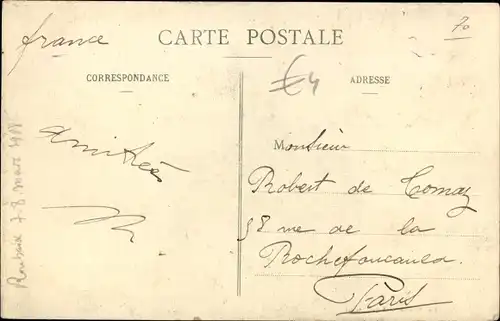 france
CARTE POSTALE
70
CORRESPONDANCE
€4
ADRESSE
Amitiés
Monsieur
Robert de Comaz
58 rue de la
Rochefoucauld
Paris
Roubaix 7-8 mars